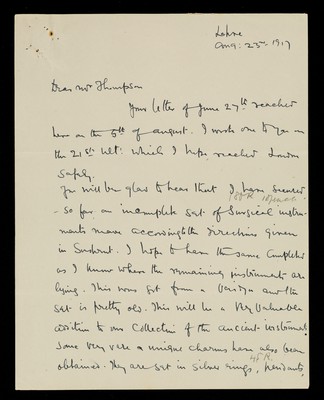 Lahore
Aug: 23rd, 1917
Dear Mr Thompson
Your letter of June 27th reached
here on the 5th of August. I wrote one to you on
the 21st ult: which I hope reached London
safely.
You will be glad to hear that I have secured
- so far an incomplete set of Surgical instru-
ments made according to the directions given
in Sushrut. I hope to have the same completed
as I know where the remaining instruments are
lying. This was got from a Vaidya and the
set is pretty old. This will be a very valuable
addition to our Collection of the ancient instruments.
Some very rare & unique charms have also been
obtained. They are set in silver rings, pendants,